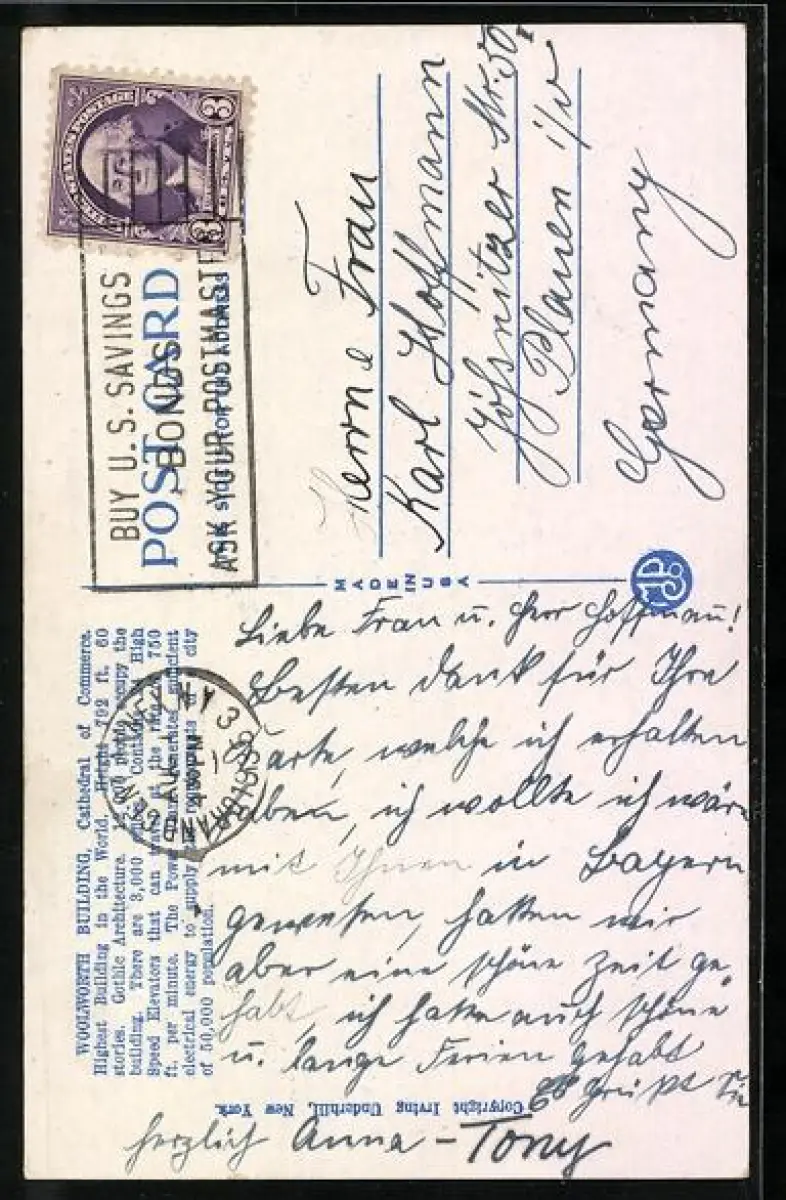 WOOLWORTH BUILDING, Cathedral of Commerce.
Highest Building in the World. Height 792 ft. 60
stories. Gothic Architecture. people occupy the
building. There are 3,000 High
Speed Elevators that can travel at the rate of 750
ft. per minute. The Power generates sufficient
electrical energy to supply requirements of city
of 50,000 population.
BUY U.S. SAVINGS
BONDS
ASK YOUR POSTMASTER
POST CARD
UNITED STATES POSTAGE
3 3
MADE IN USA
Herrn e Frau
Karl Hoffmann
Jößnitzer Str. 50
Plauen i/V
Germany
Liebe Frau u. Herr Hoffmann!
Besten Dank für Ihre
Karte, welche ich erhalten
haben, ich wollte ich wäre
mit Ihnen in Bayern
gewesen, hatten wir
aber eine schöne Zeit ge-
habt, ich hatte auch schöne
u. lange Ferien gehabt
Es grüßt Sie
herzlich Anna - Tony
Copyright Irving Underhill, New York.